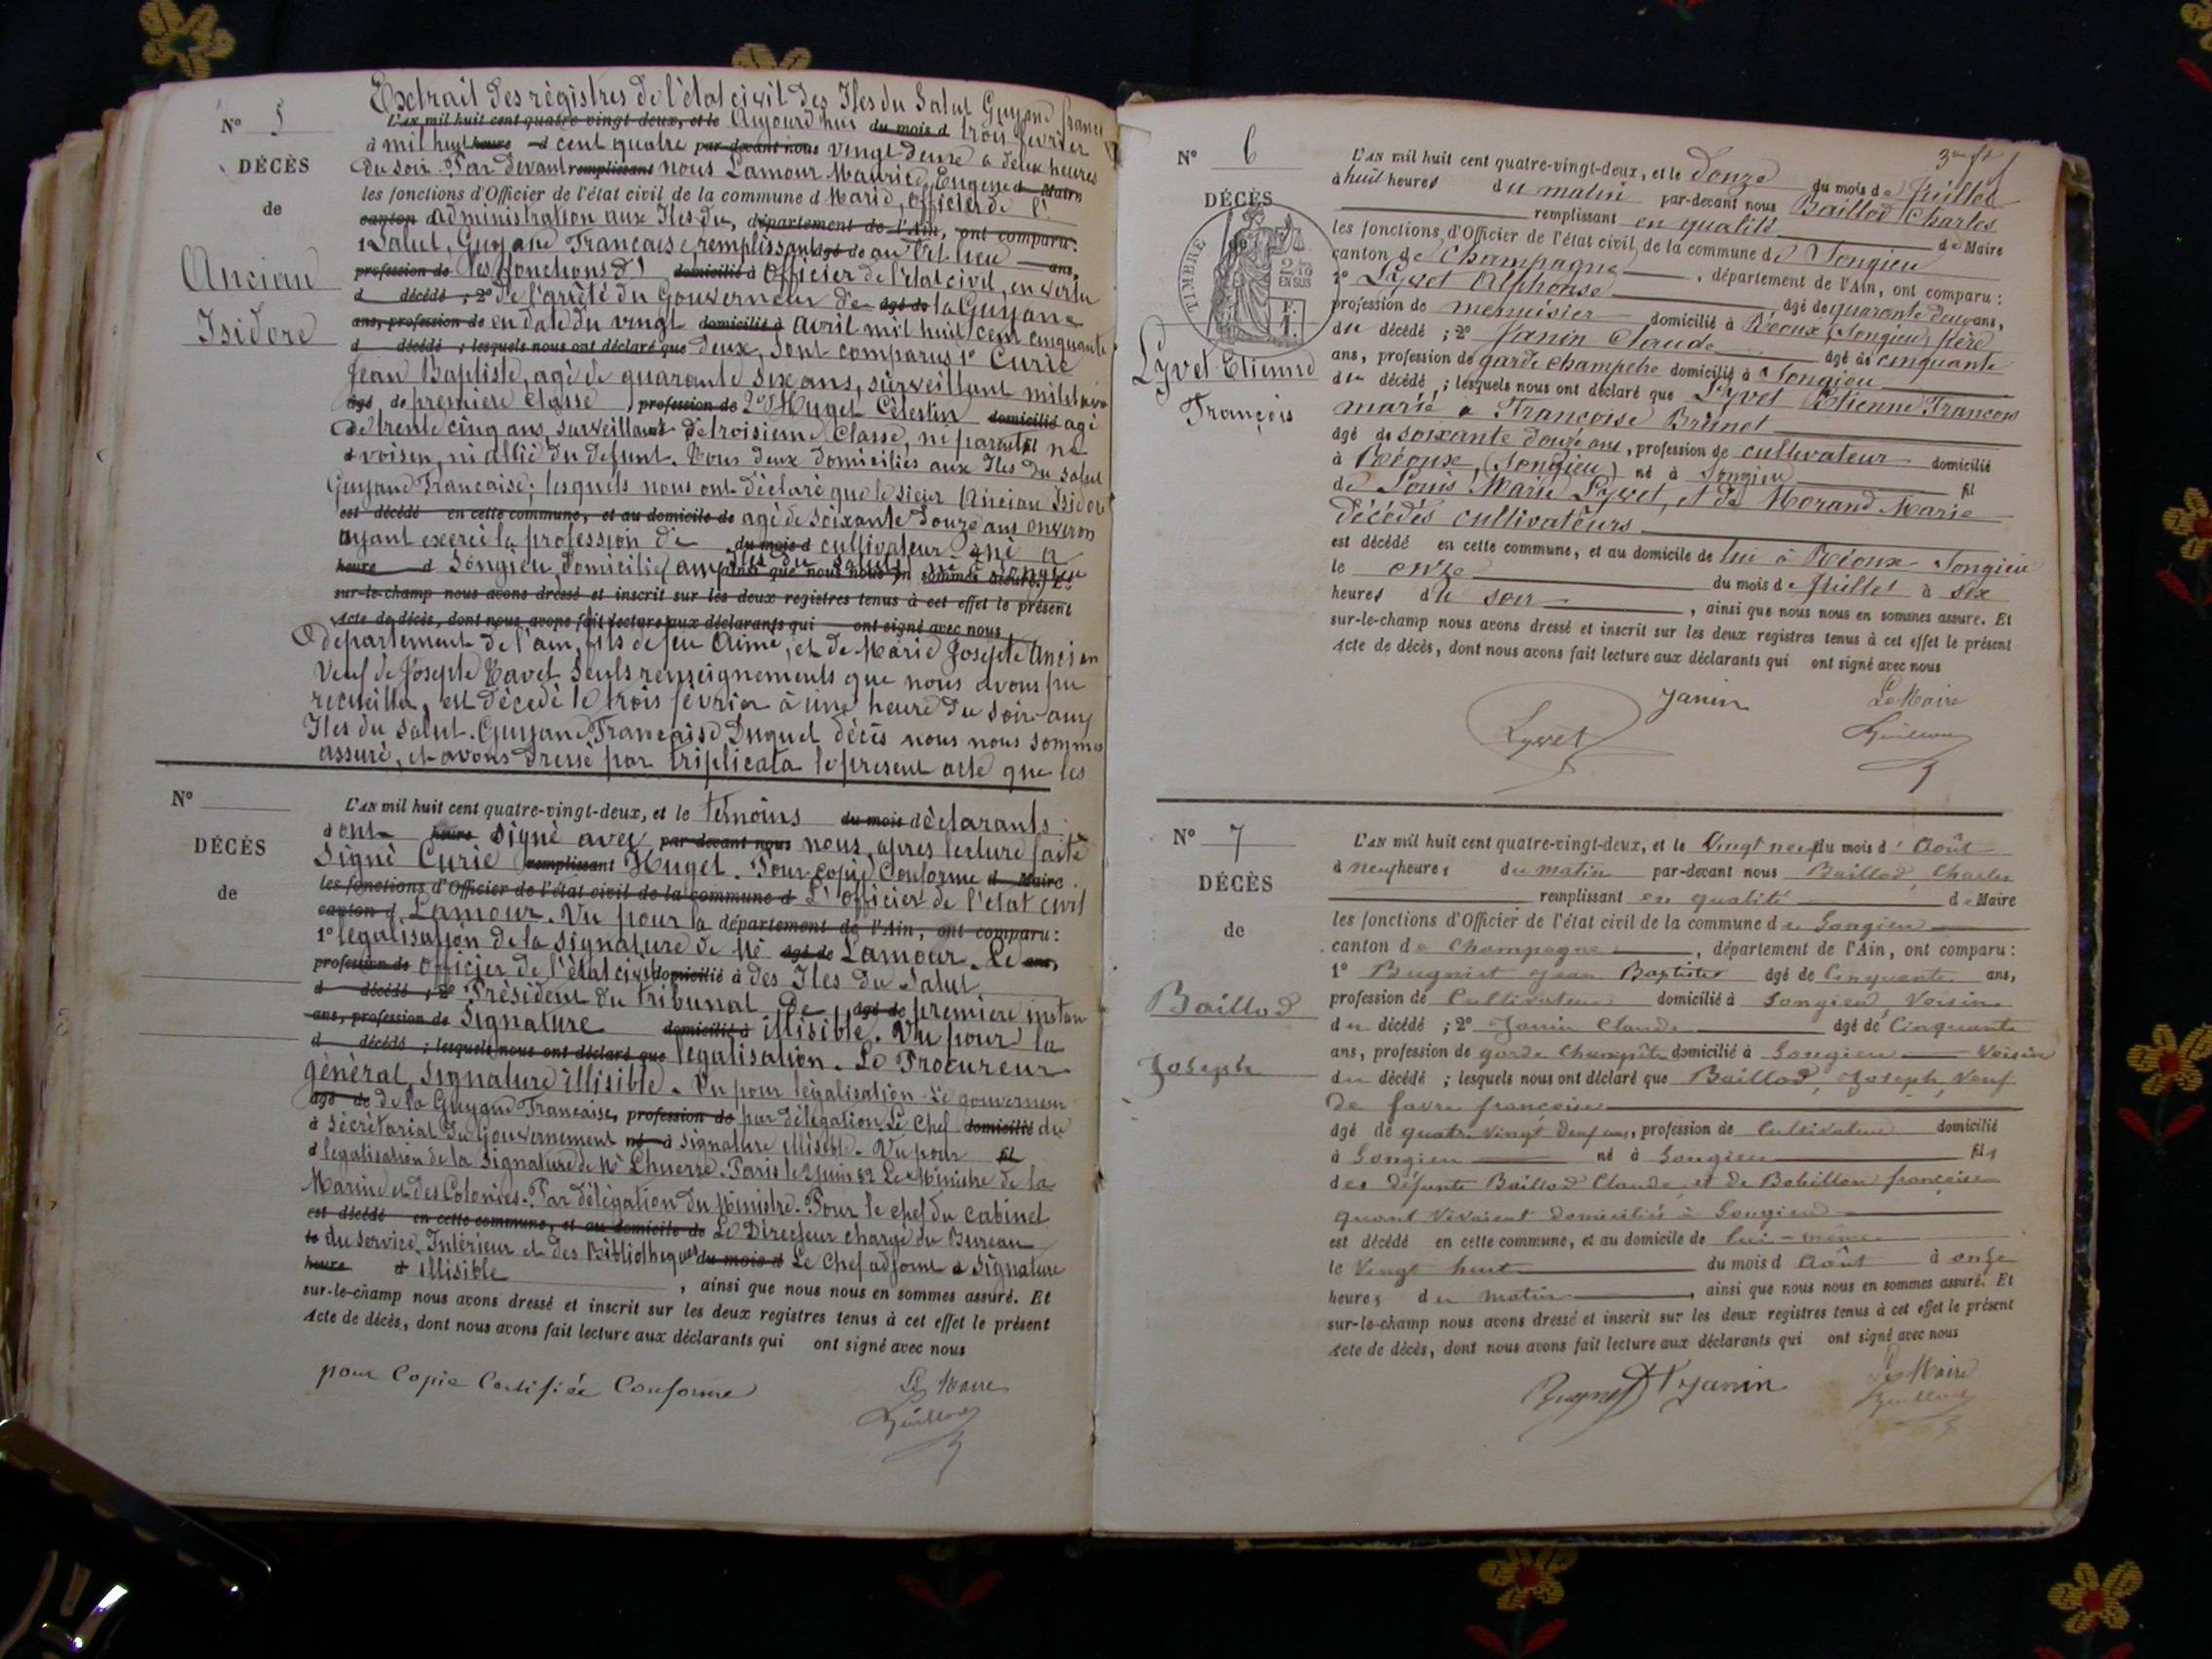 Extrait des règistres de l'état civil des Iles du Salut Guyane
N° 5
L'AN mil huit cent quatre-vingt-deux, et le Aujourd'hui du mois d trois février
à mil huit heures d cent quatre par-devant nous vingt deux à deux heures
DÉCÈS
du soir. Par devant remplissant nous Lamour Maurice, Eugène d Maire
les fonctions d'Officier de l'état civil de la commune d Marie, officier de l'
de
canton administration aux Iles du, département de l'Ain, ont comparu:
1° Salut, Guyane Francaise, remplissant âgé de au dit lieu ans,
Ancian
profession de les fonctions d' domicilié à Officier de l'état civil, en vertu
d décédé ; 2° de l'arrêté du Gouverneur de âgé de la Guyane
Isidore
ans, profession de en date du vingt domicilié à avril mil huit cent cinquante
d décédé ; lesquels nous ont déclaré que deux, sont comparus 1° Curie
Jean Baptiste, agé de quarante six ans, surveillant militaire
âgé de première classe, profession de 2° Huget Célestin domicilié agé
de trente cinq ans, surveillant de troisieme classe, ni parent ni
voisin, ni allié du défunt. Tous deux domiciliés aux Iles du Salut
Guyane Francaise; lesquels nous ont déclaré que le sieur Ancian Isidore
est décédé en cette commune, et au domicile de agé de soixante douze ans environ
ayant exercé la profession de du mois d cultivateur né à
heure d Songieu, domicilié aux ainsi que nous nous en sommes assuré. Et
sur-le-champ nous avons dressé et inscrit sur les deux registres tenus à cet effet le présent
Acte de décès, dont nous avons fait lecture aux déclarants qui ont signé avec nous
département de l'ain, fils de feu Aimé, et de Marie Josepte Ancian
Veuf de Josepte Tavel. Seuls renseignements que nous avons pu
recueillir, est décédé le trois février à une heure du soir aux
Iles du Salut. Guyane Francaise Duquel décès nous nous sommes
assuré, et avons dressé par triplicata le present acte que les
N°
L'AN mil huit cent quatre-vingt-deux, et le témoins du mois déclarants
à ont heure signé avec par-devant nous nous, apres lecture faite
DÉCÈS
Signé Curie remplissant Huget. Pour copie Conforme d Maire
les fonctions d'Officier de l'état civil de la commune d L'officier de l'état civil
de
canton d Lamour. Vu pour la département de l'Ain, ont comparu:
1° légalisation de la signature de Mr âgé de Lamour. Le ans,
profession de officier de l'état civil domicilié à des Iles du Salut
d décédé ; 2° Président du tribunal de âgé de première instan
ans, profession de Signature domicilié à illisible. Vu pour la
d décédé ; lesquels nous ont déclaré que légalisation. Le Procureur
général, signature illisible. Vu pour légalisation. Le gouverneur
âgé de de la Guyane Francaise, profession de par délégation Le Chef domicilié du
à Sécrétariat du Gouvernement né à signature illisible. Vu pour fil
d legalisation de la signature de Mr Paris le 2 juin 82 Le Ministre de la
Marine et des Colonies. Par délégation du Ministre. Pour le chef du cabinet
est décédé en cette commune, et au domicile de Le Directeur chargé du Bureau
le du service Intérieur et des Bibliothèques du mois d Le Chef adjoint à Signature
heure d illisible , ainsi que nous nous en sommes assuré. Et
sur-le-champ nous avons dressé et inscrit sur les deux registres tenus à cet effet le présent
Acte de décès, dont nous avons fait lecture aux déclarants qui ont signé avec nous
pour Copie Certifiée Conforme
Le Maire
Baillod
N° 6
L'AN mil huit cent quatre-vingt-deux, et le Douze du mois de Juillet
à huit heures du matin par-devant nous Baillod Charles
DÉCÈS
remplissant en qualité de Maire
de
les fonctions d'Officier de l'état civil de la commune de Songieu
TIMBRE
canton de Champagne, département de l'Ain, ont comparu:
2/10 EN SUS
1° Lyvet Alphonse âgé de quarante deux ans,
F. 1.
profession de menuisier domicilié à Réoux (Songieu) père
du décédé ; 2° Janin Claude âgé de cinquante
Lyvet Etienne
ans, profession de garde champetre domicilié à Songieu
François
du décédé ; lesquels nous ont déclaré que Lyvet Etienne Francois
marié à Françoise Brunet
âgé de soixante douze ans, profession de cultivateur domicilié
à Réoux, (Songieu) né à Songieu fil
de Louis Marie Lyvet, et de Morand Marie
décédés cultivateurs
est décédé en cette commune, et au domicile de lui à Réoux Songieu
le onze du mois de Juillet à six
heures du soir, ainsi que nous nous en sommes assuré. Et
sur-le-champ nous avons dressé et inscrit sur les deux registres tenus à cet effet le présent
Acte de décès, dont nous avons fait lecture aux déclarants qui ont signé avec nous
Lyvet
Janin
Le Maire
Baillod
N° 7
L'AN mil huit cent quatre-vingt-deux, et le Vingt neuf du mois d'Août
à neuf heures du matin par-devant nous Baillod, Charles
DÉCÈS
remplissant en qualité de Maire
de
les fonctions d'Officier de l'état civil de la commune de Songieu
canton de Champagne, département de l'Ain, ont comparu:
1° Bugniet Jean Baptiste âgé de Cinquante ans,
Baillod
profession de Cultivateur domicilié à Songieu Voisin
du décédé ; 2° Janin Claude âgé de Cinquante
Joseph
ans, profession de garde Champêtre domicilié à Songieu Voisin
du décédé ; lesquels nous ont déclaré que Baillod, Joseph, Veuf
de favre francoise
âgé de quatre Vingt deux ans, profession de Cultivateur domicilié
à Songieu né à Songieu fils
des défunts Baillod Claude, et de Bobillon françoise
quant Vivaient domiciliés à Songieu
est décédé en cette commune, et au domicile de lui-même
le Vingt huit du mois d Août à onze
heures du matin, ainsi que nous nous en sommes assuré. Et
sur-le-champ nous avons dressé et inscrit sur les deux registres tenus à cet effet le présent
Acte de décès, dont nous avons fait lecture aux déclarants qui ont signé avec nous
Bugniet
Janin
Le Maire
Baillod